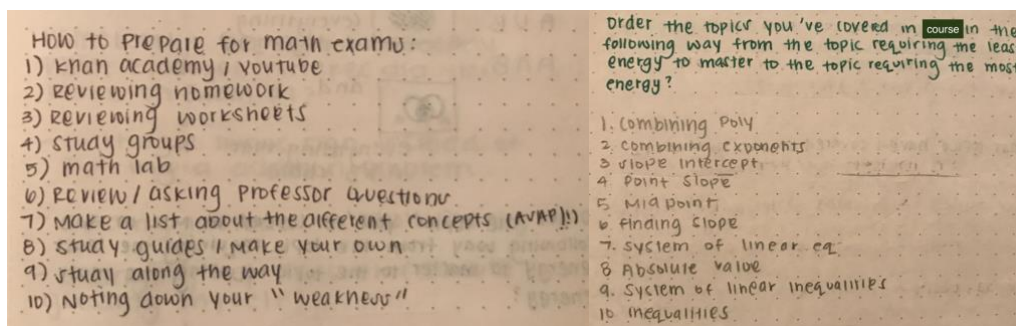 How to prepare for math exams:
1) Khan academy / Youtube
2) Reviewing homework
3) Reviewing worksheets
4) study groups
5) math lab
6) Review / asking professor questions
7) Make a list about the different concepts (AVAP)!)
8) study guides / Make your own
9) study along the way
10) Noting down your "weakness"
Order the topics you've covered in course in the
following way from the topic requiring the leas
energy to master to the topic requiring the most
energy?
1. Combining Poly
2. Combining exponents
3 slope intercept
4 Point Slope
5 Midpoint
6 finding slope
7. System of linear eq.
8 Absolute value
9. System of linear inequalities
10 inequalities